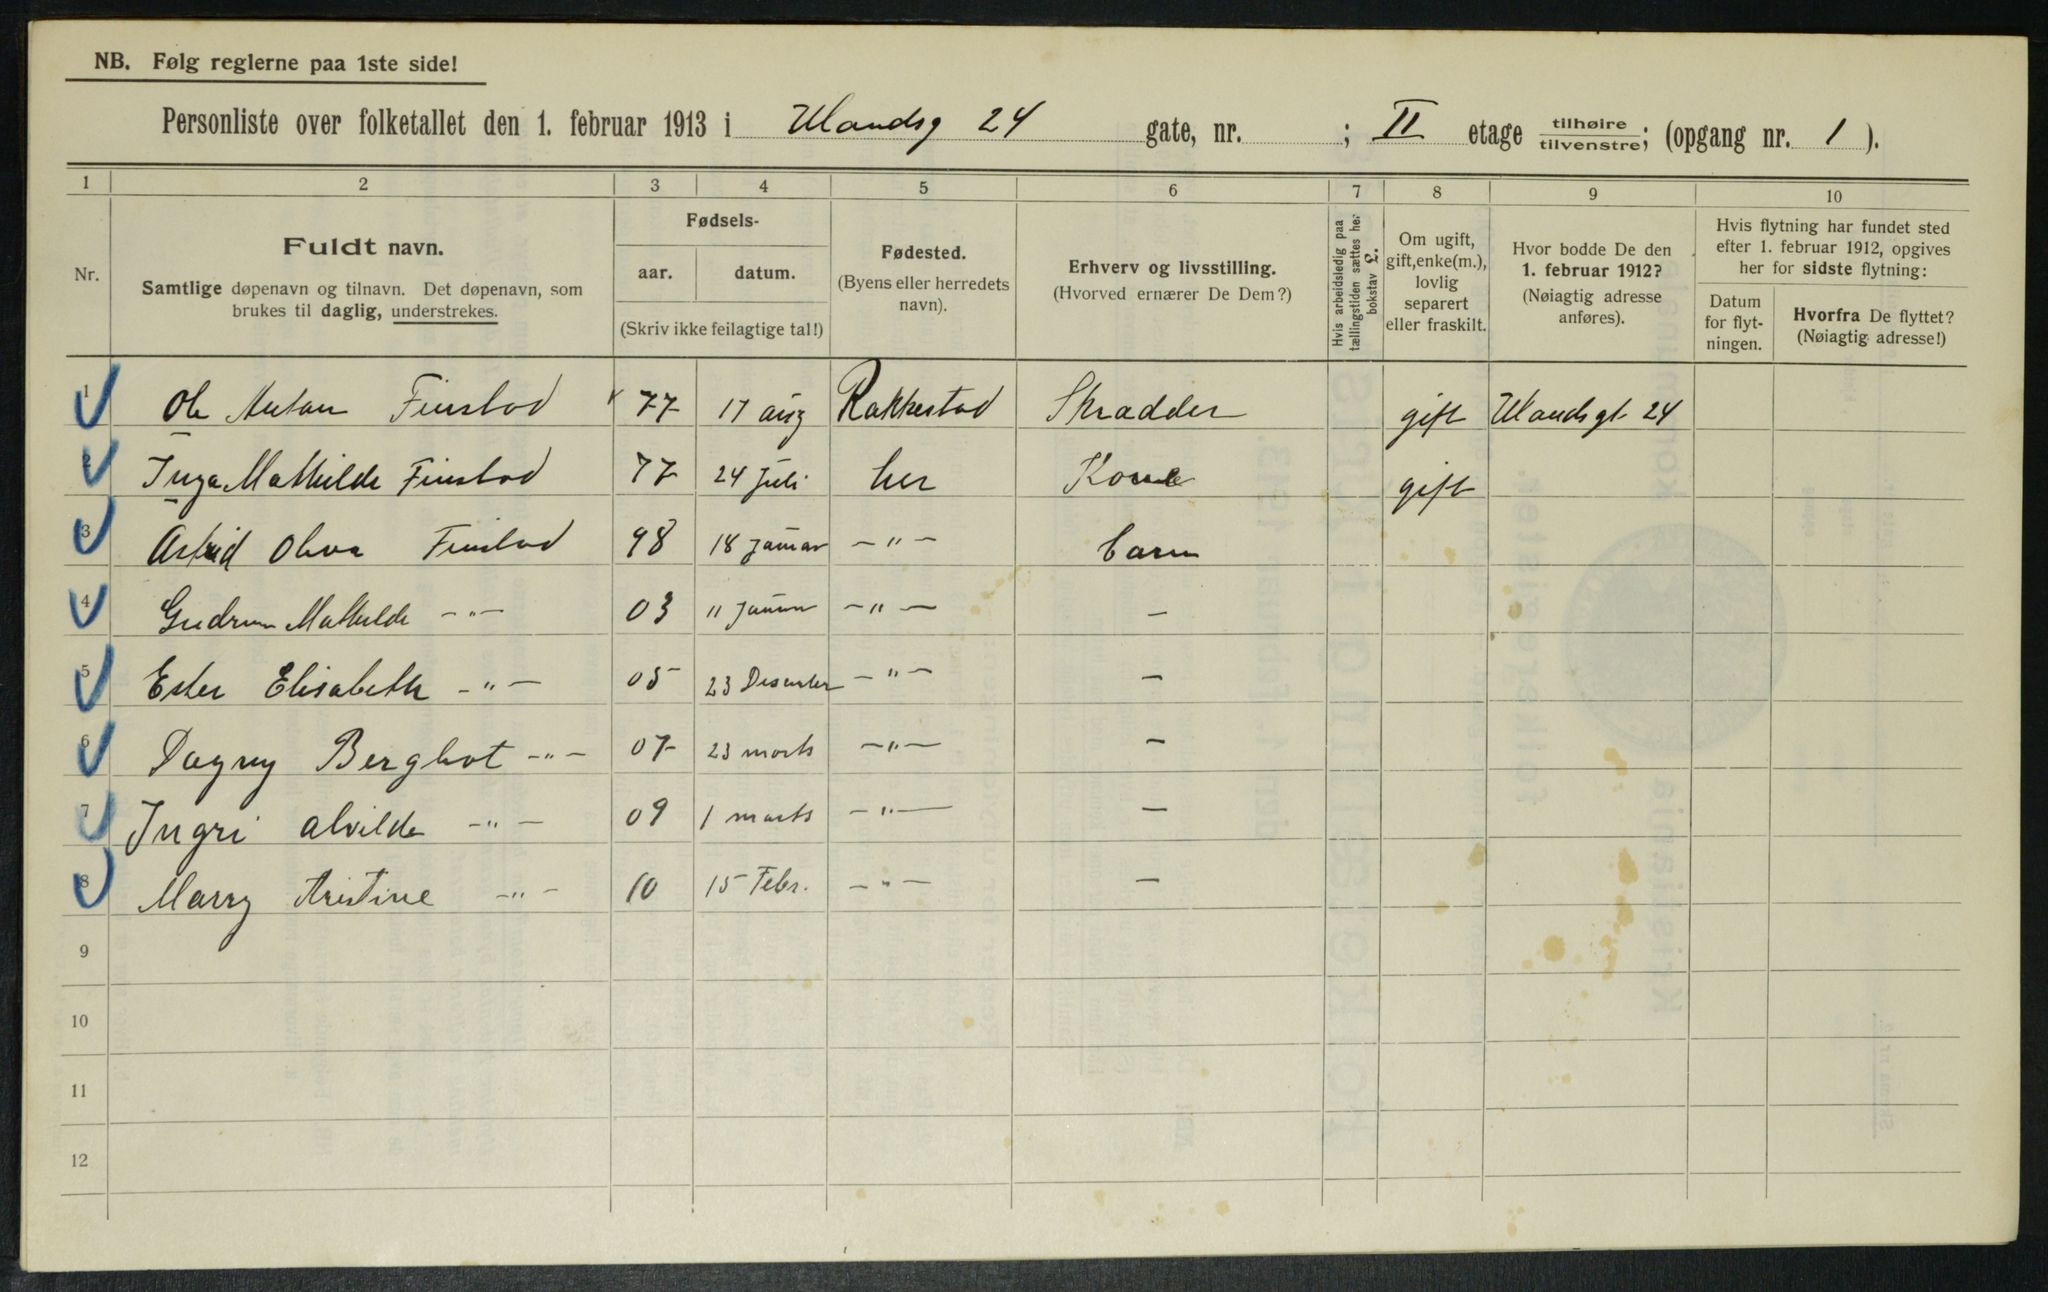 NB. Følg reglerne paa 1ste side!
Personliste over folketallet den 1. februar 1913 i Ulandsg 24 gate, nr. ; II etage tilhøire/tilvenstre; (opgang nr. 1 ).
1 2 3 4 5 6 7 8 9 10
Nr.
Fuldt navn.
Samtlige døpenavn og tilnavn. Det døpenavn, som
brukes til daglig, understrekes.
Fødsels-
aar. datum.
(Skriv ikke feilagtige tal!)
Fødested.
(Byens eller herredets
navn).
Erhverv og livsstilling.
(Hvorved ernærer De Dem?)
Hvis arbeidsledig paa
tællingstiden sættes her
bokstav L.
Om ugift,
gift, enke(m.),
lovlig
separert
eller fraskilt.
Hvor bodde De den
1. februar 1912?
(Nøiagtig adresse
anføres).
Hvis flytning har fundet sted
efter 1. februar 1912, opgives
her for sidste flytning:
Datum
for flyt-
ningen.
Hvorfra De flyttet?
(Nøiagtig adresse!)
1 Ole Antan Finstad 77 17 aug Rakkestad Skrædder gift Ulandsgt 24
2 Inga Mathilde Finstad 77 24 Juli her Kone gift
3 Astrid Finstad 98 18 Januar - " - barn
4 Gudrun Mathilde - " - 03 11 Januar - " - -
5 Ester Elisabeth - " - 05 23 Desember - " - -
6 Dagny Berghot - " - 07 23 marts - " - -
7 Ingri Alvilde - " - 09 1 marts - " - -
8 Marry Kristine - " - 10 15 Febr. - " - -
9
10
11
12